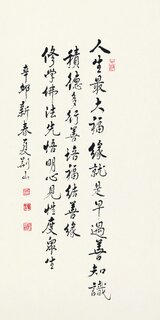 人生最大福緣就是早遇善知識
積德多行善培福結善緣
修學佛法先悟明心見性度眾生
辛卯新春夏荆山